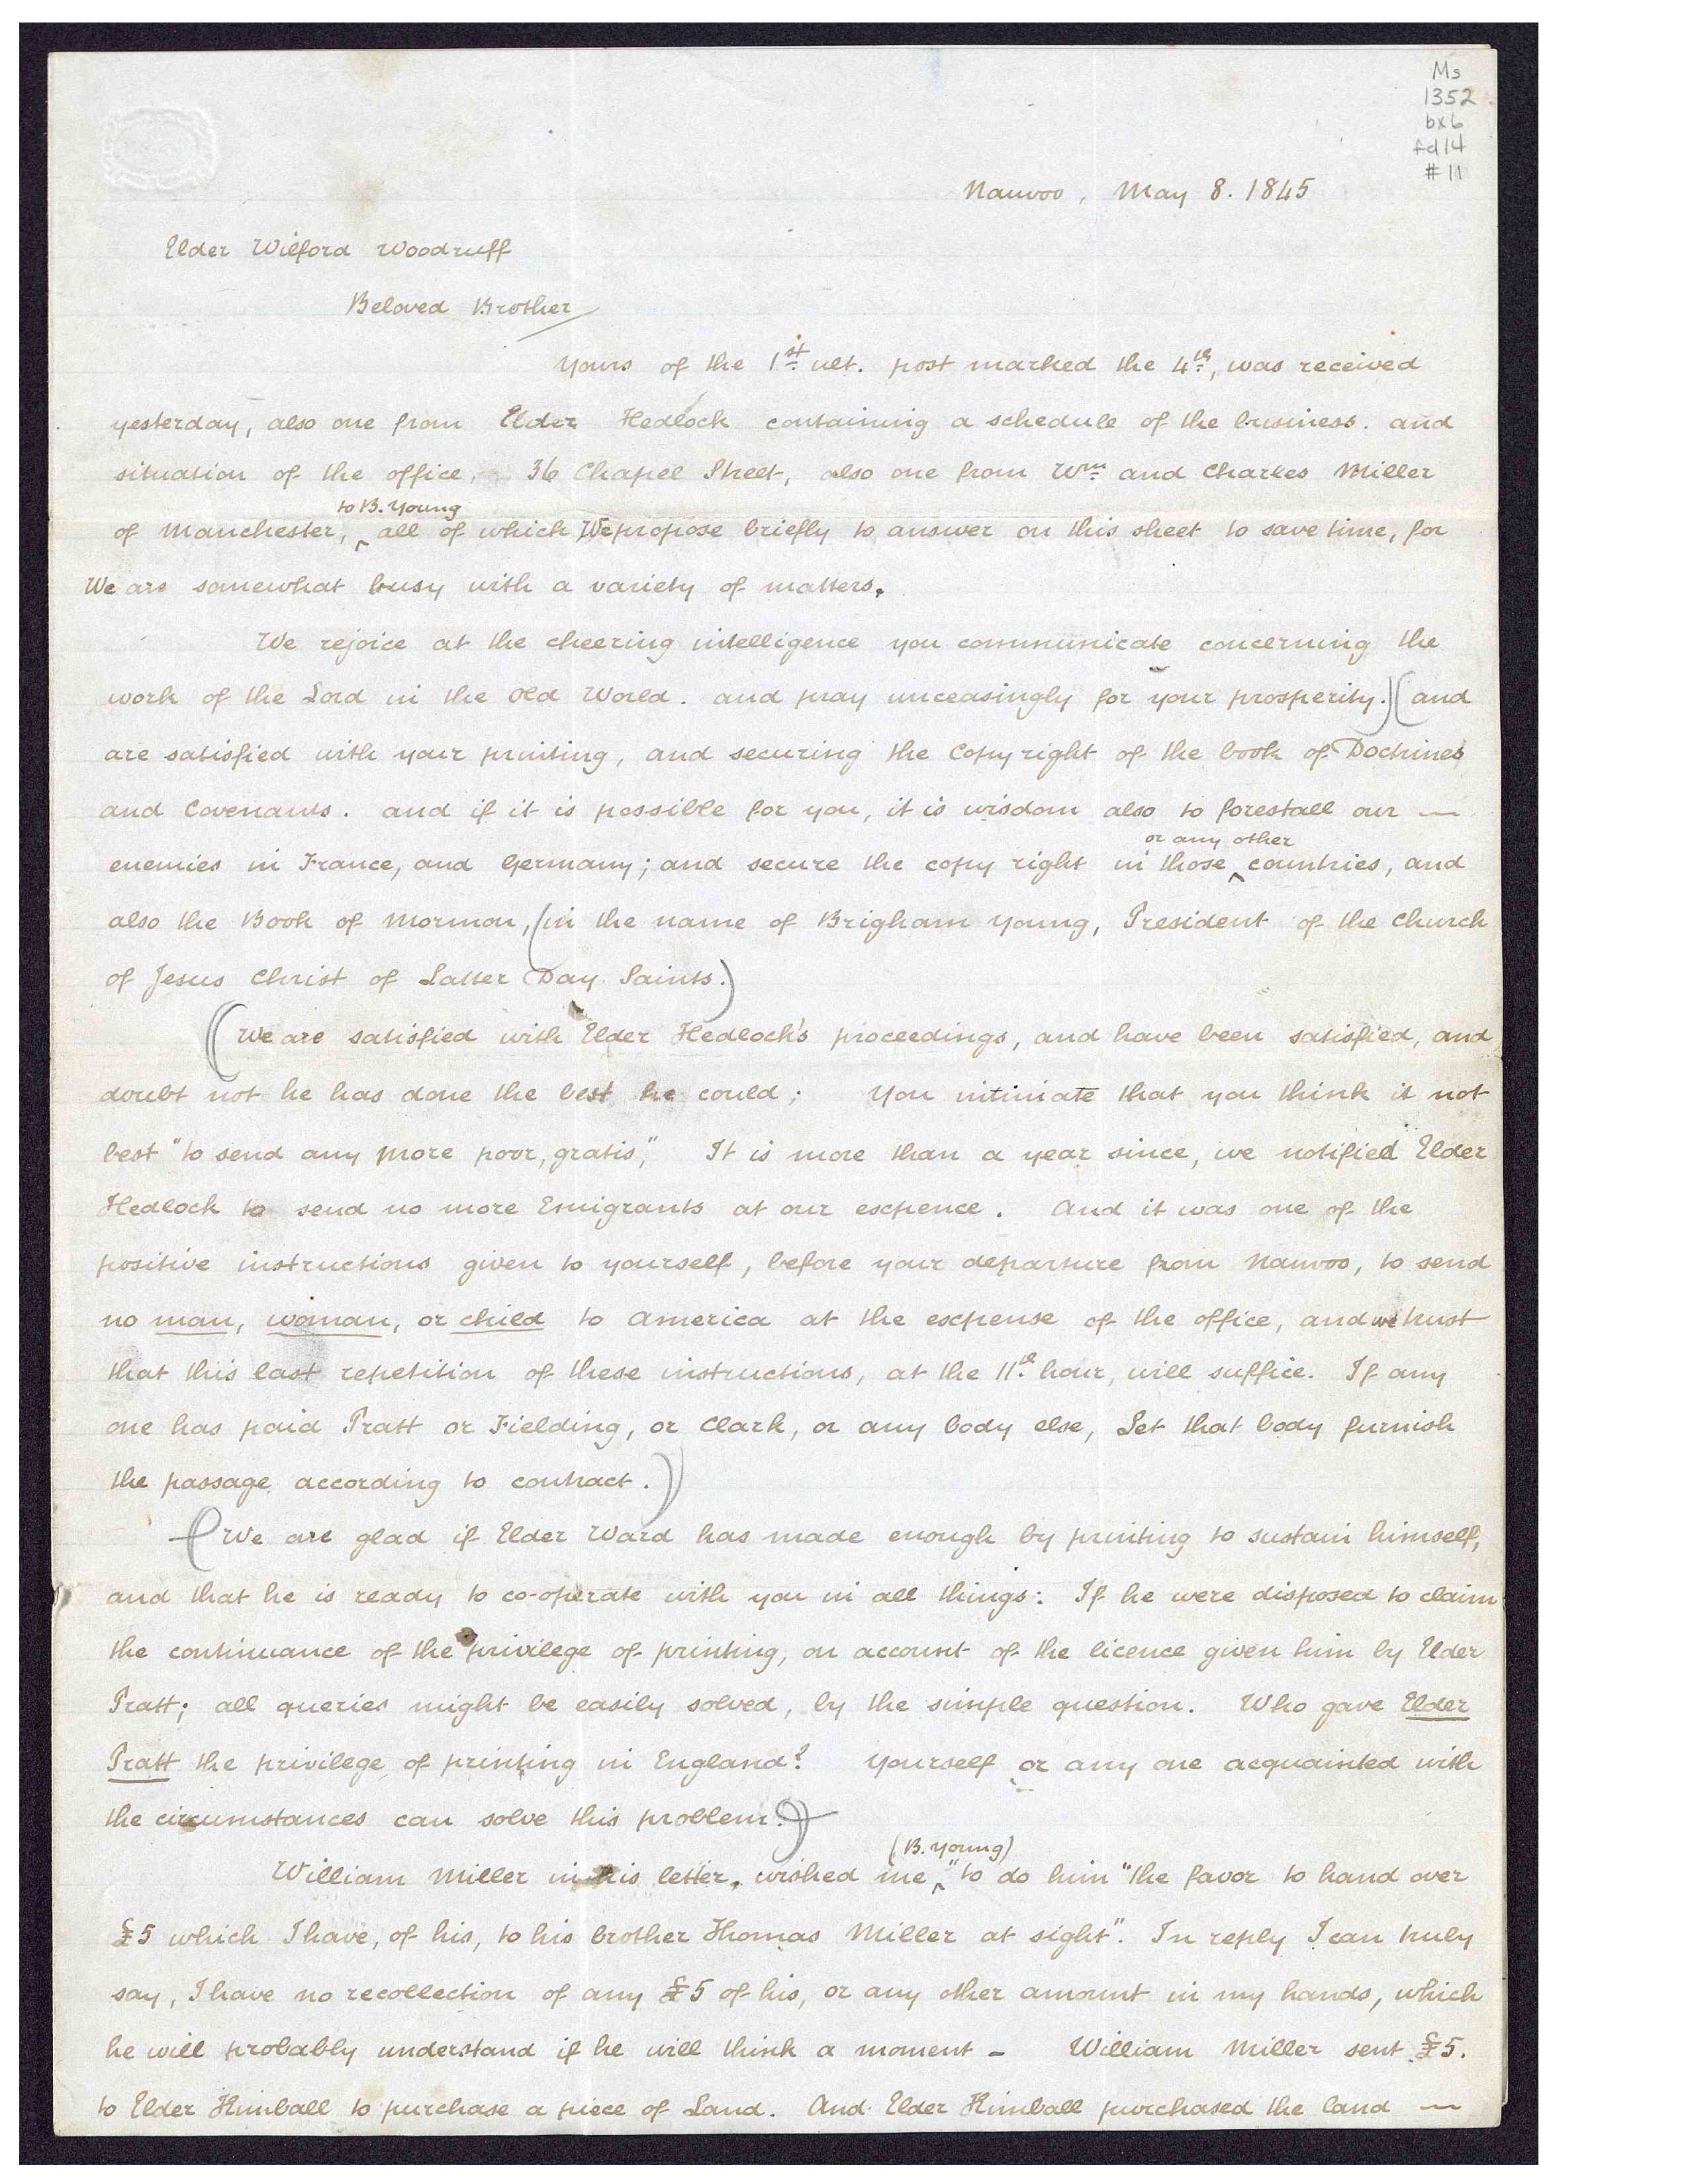 Ms
1352
bx6
fd14
#11
Nauvoo, May 8. 1845
Elder Wilford Woodruff
Beloved Brother
Yours of the 1st ult. post marked the 4th, was received
yesterday, also one from Elder Hedlock containing a schedule of the business. and
situation of the office, 36 Chapel Street, also one from Wm and Charles Miller
to B. Young
of Manchester, ^ all of which We propose briefly to answer on this sheet to save time, for
We are somewhat busy with a variety of matters.
We rejoice at the cheering intelligence you communicate concerning the
work of the Lord in the Old World. and pray unceasingly for your prosperity.) (and
are satisfied with your printing, and securing the Copy right of the book of Doctrines
and Covenants. and if it is possible for you, it is wisdom also to forestall our —
or any other
enemies in France, and Germany; and secure the copy right in those ^ countries, and
also the Book of Mormon, (in the name of Brigham Young, President of the Church
of Jesus Christ of Latter Day Saints.)
(We are satisfied with Elder Hedlock's proceedings, and have been satisfied, and
doubt not he has done the best he could; You intimate that you think it not
best "to send any more poor, gratis," It is more than a year since, we notified Elder
Hedlock to send no more Emigrants at our expence. And it was one of the
positive instructions given to yourself, before your departure from Nauvoo, to send
no man, woman, or child to America at the expense of the office, and we trust
that this last repetition of these instructions, at the 11th hour, will suffice. If any
one has paid Pratt or Fielding, or Clark, or any body else, Let that body furnish
the passage according to contract.)
(We are glad if Elder Ward has made enough by printing to sustain himself,
and that he is ready to co-operate with you in all things: If he were disposed to claim
the continuance of the privilege of printing, on account of the licence given him by Elder
Pratt; all queries might be easily solved, by the simple question. Who gave Elder
Pratt the privilege of printing in England? Yourself or any one acquainted with
the circumstances can solve this problem.)
(B. Young)
William Miller in his letter, wished me ^ "to do him "the favor to hand over
£5 which I have, of his, to his brother Thomas Miller at sight". In reply I can truly
say, I have no recollection of any £5 of his, or any other amount in my hands, which
he will probably understand if he will think a moment – William Miller sent £5.
to Elder Kimball to purchase a piece of Land. And Elder Kimball purchased the land —